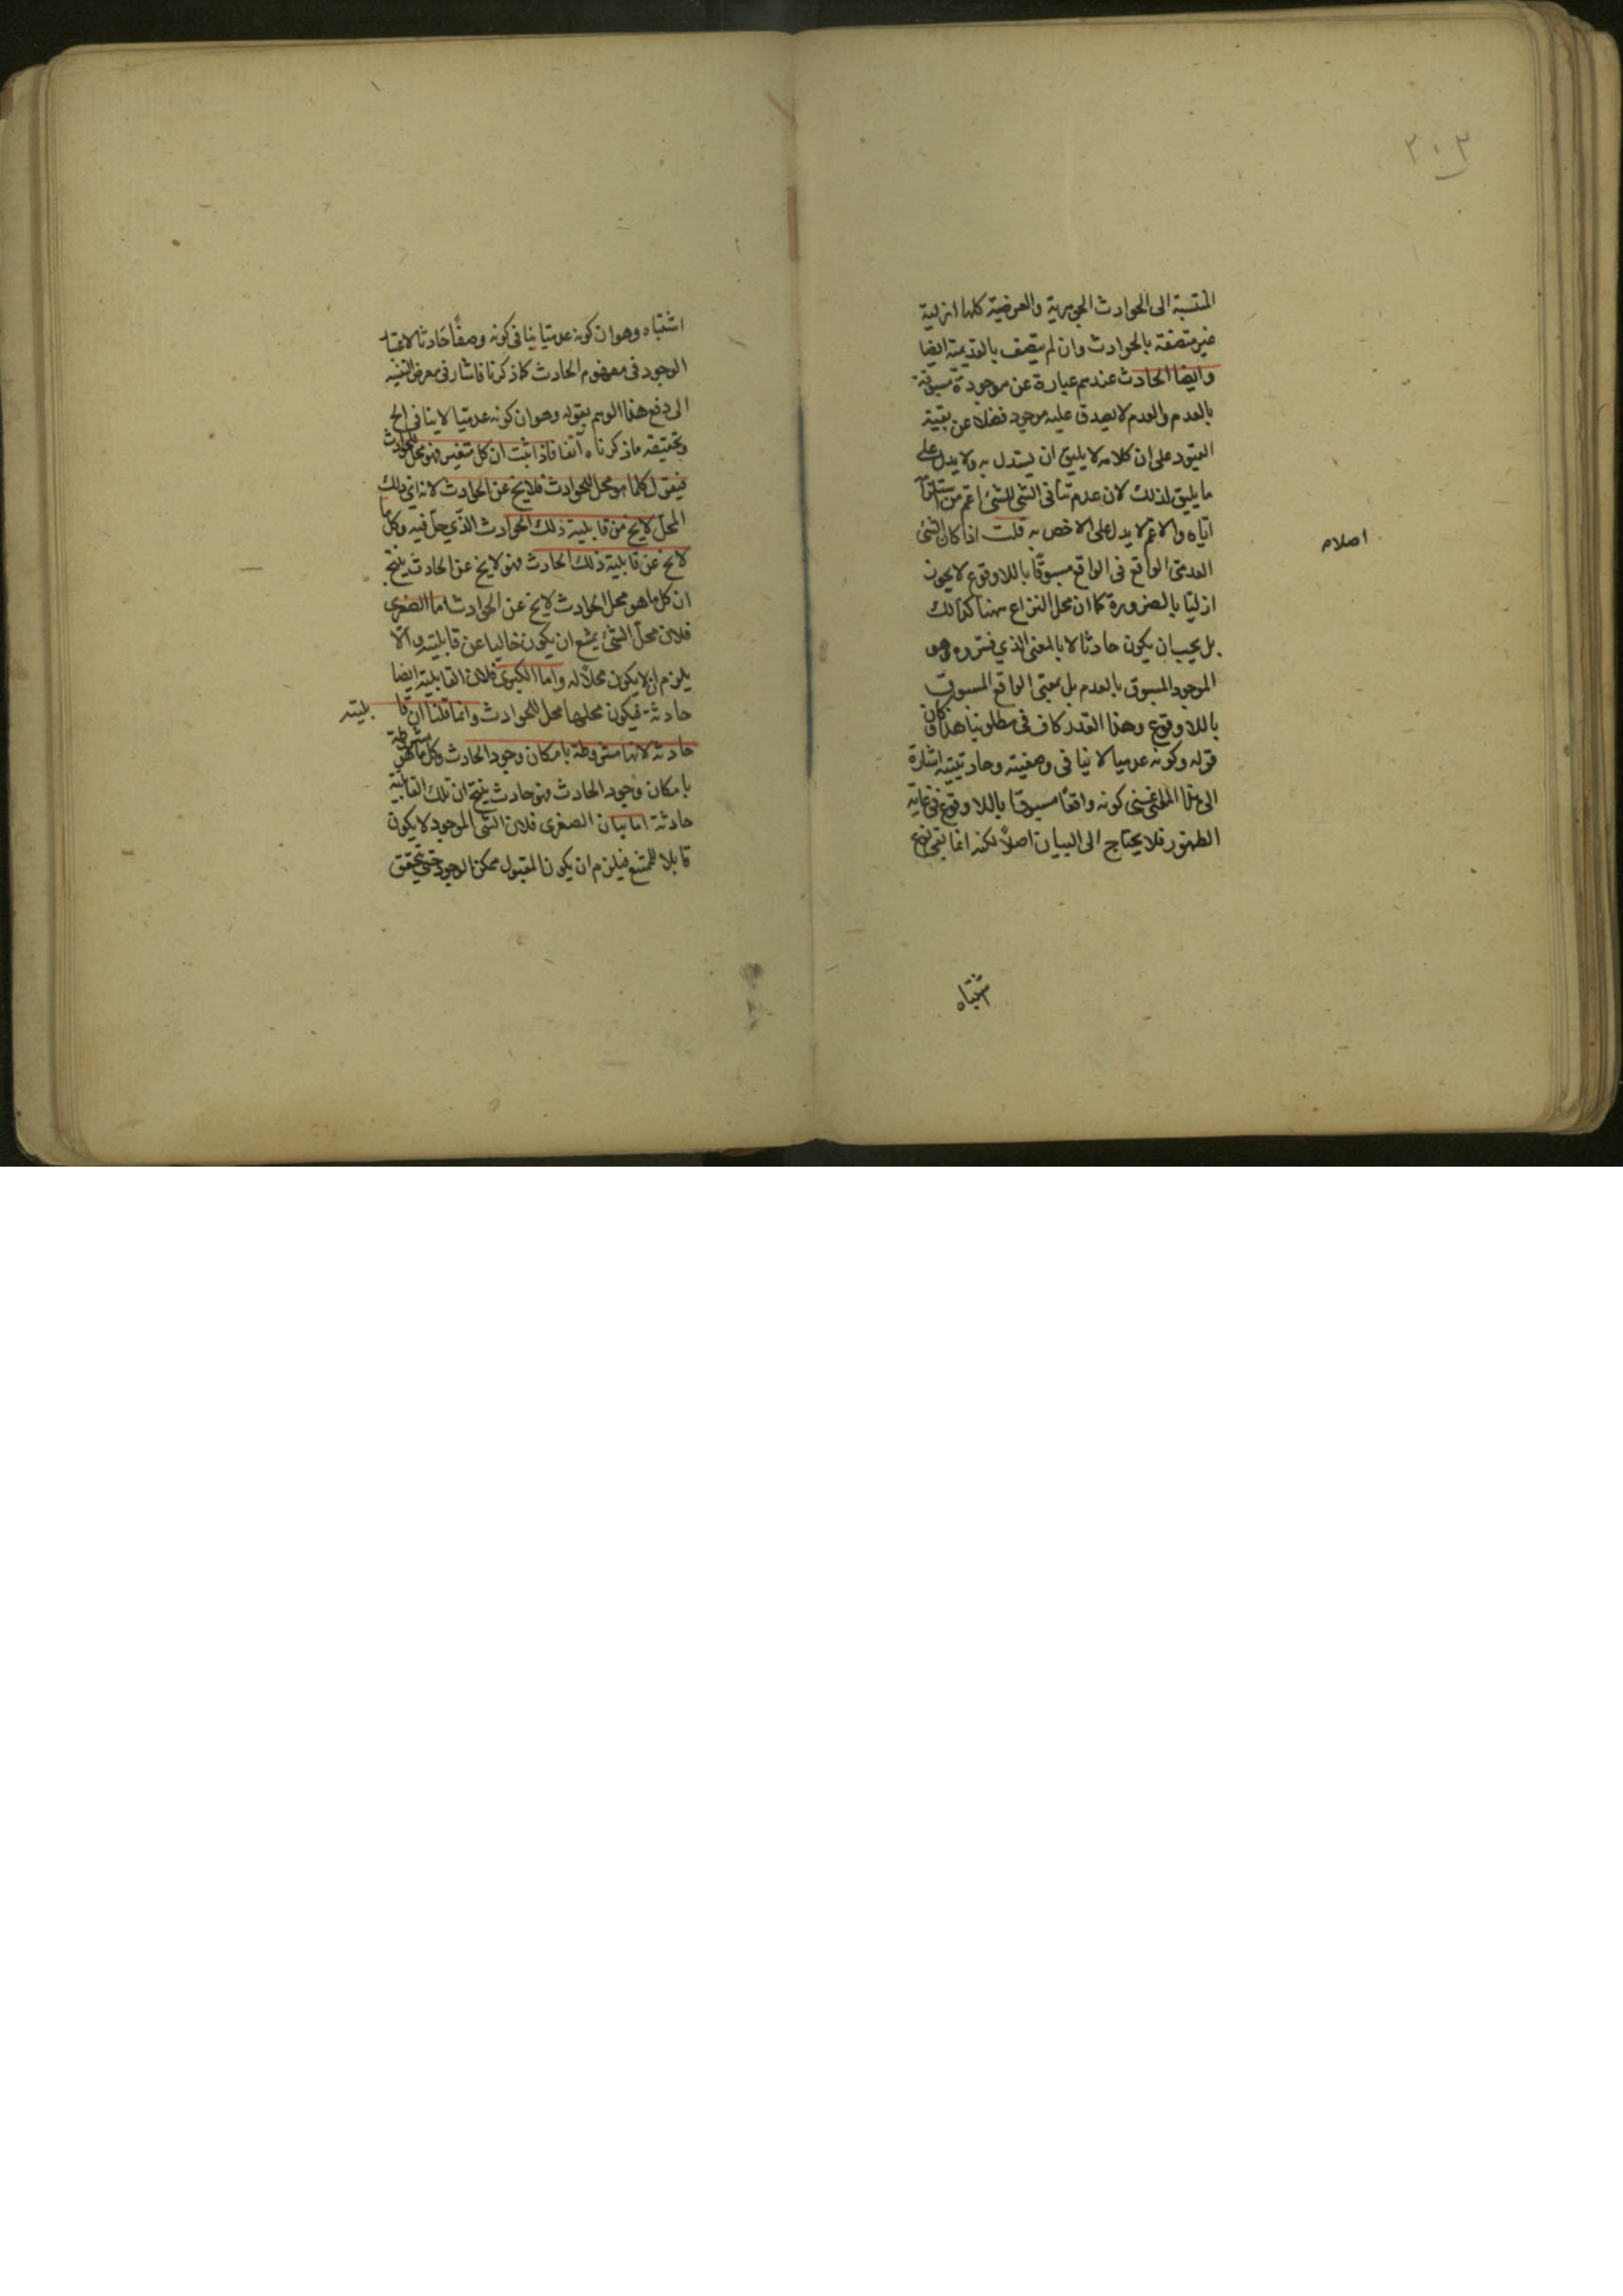 ٢٠٣
المنتسبة الى الحوادث الجوهرية والعرضية كلها ازلية
غير متصفة بالحوادث وان لم يتصف بالقديمة ايضا
وايضا الحادث عندهم عبارة عن موجودة مسبوقة
بالعدم والعدم لا يصدق عليه موجود فضلا عن بقية
القيود على ان كلامه لا يليق ان يستدل به ولا يدل على
ما يليق لذلك لان عدم تنافى الشئ للشئ اعم من
اياه والاعم لا يدل على الاخص به قلت اذا كان الشئ
العدمى الواقع فى الواقع مسبوقا باللاوقوع لا يجوز
ازليا بالضرورة كما ان محل النزاع ههنا كذلك
بل يجب ان يكون حادثا لا بالمعنى الذي فسروه وهو
الموجود المسبوق بالعدم بل بمعنى الواقع المسبوق
باللاوقوع وهذا القدر كاف فى مطلوبنا هذا كان
قوله وكونه عدميا لا ينافى وصفيته وحادثيته اشارة
الى هذا المعنى كونه واقعا مسبوقا باللاوقوع فى غاية
الظهور فلا يحتاج الى البيان اصلا لكنه انما بقى نوع
اشتباه
اصلام
اشتباه وهو ان كونه عدميا ينافى كونه وصفا حادثا لاعتبار
الوجود فى مفهوم الحادث كما ذكرنا فاشار فى معرض التنبيه
الى دفع هذا الوهم بقوله وهو ان كونه عدميا لا ينافى الح
وتحقيقه ما ذكرناه آنفا فاذا ثبت ان كل متغير فهو محل للحوادث
فيقول كلما هو محل للحوادث فلا يخ عن الحوادث لانه اي ذلك
المحل لا يخ من قابلية ذلك الحوادث الذي حل فيه وكل ما
لا يخ عن قابلية ذلك الحادث فهو لا يخ عن الحادث ينتج
ان كل ما هو محل الحوادث لا يخ عن الحوادث اما الصغرى
فلان محل الشئ يمتنع ان يكون خاليا عن قابليته والا
يلزم ان لا يكون محلا له واما الكبرى فلان القابلية ايضا
حادثة فيكون محلها محل للحوادث وانما قلنا ان قا بليته
حادثة لانها مشروطة بامكان وجود الحادث وكل ما هو مشروطة
بامكان وجود الحادث فهو حادث ينتج ان تلك القابلية
حادثة اما بيان الصغرى فلان الشئ الموجود لا يكون
قابلا للممتنع فيلزم ان يكون المقبول ممكن الوجود حتى يتحقق